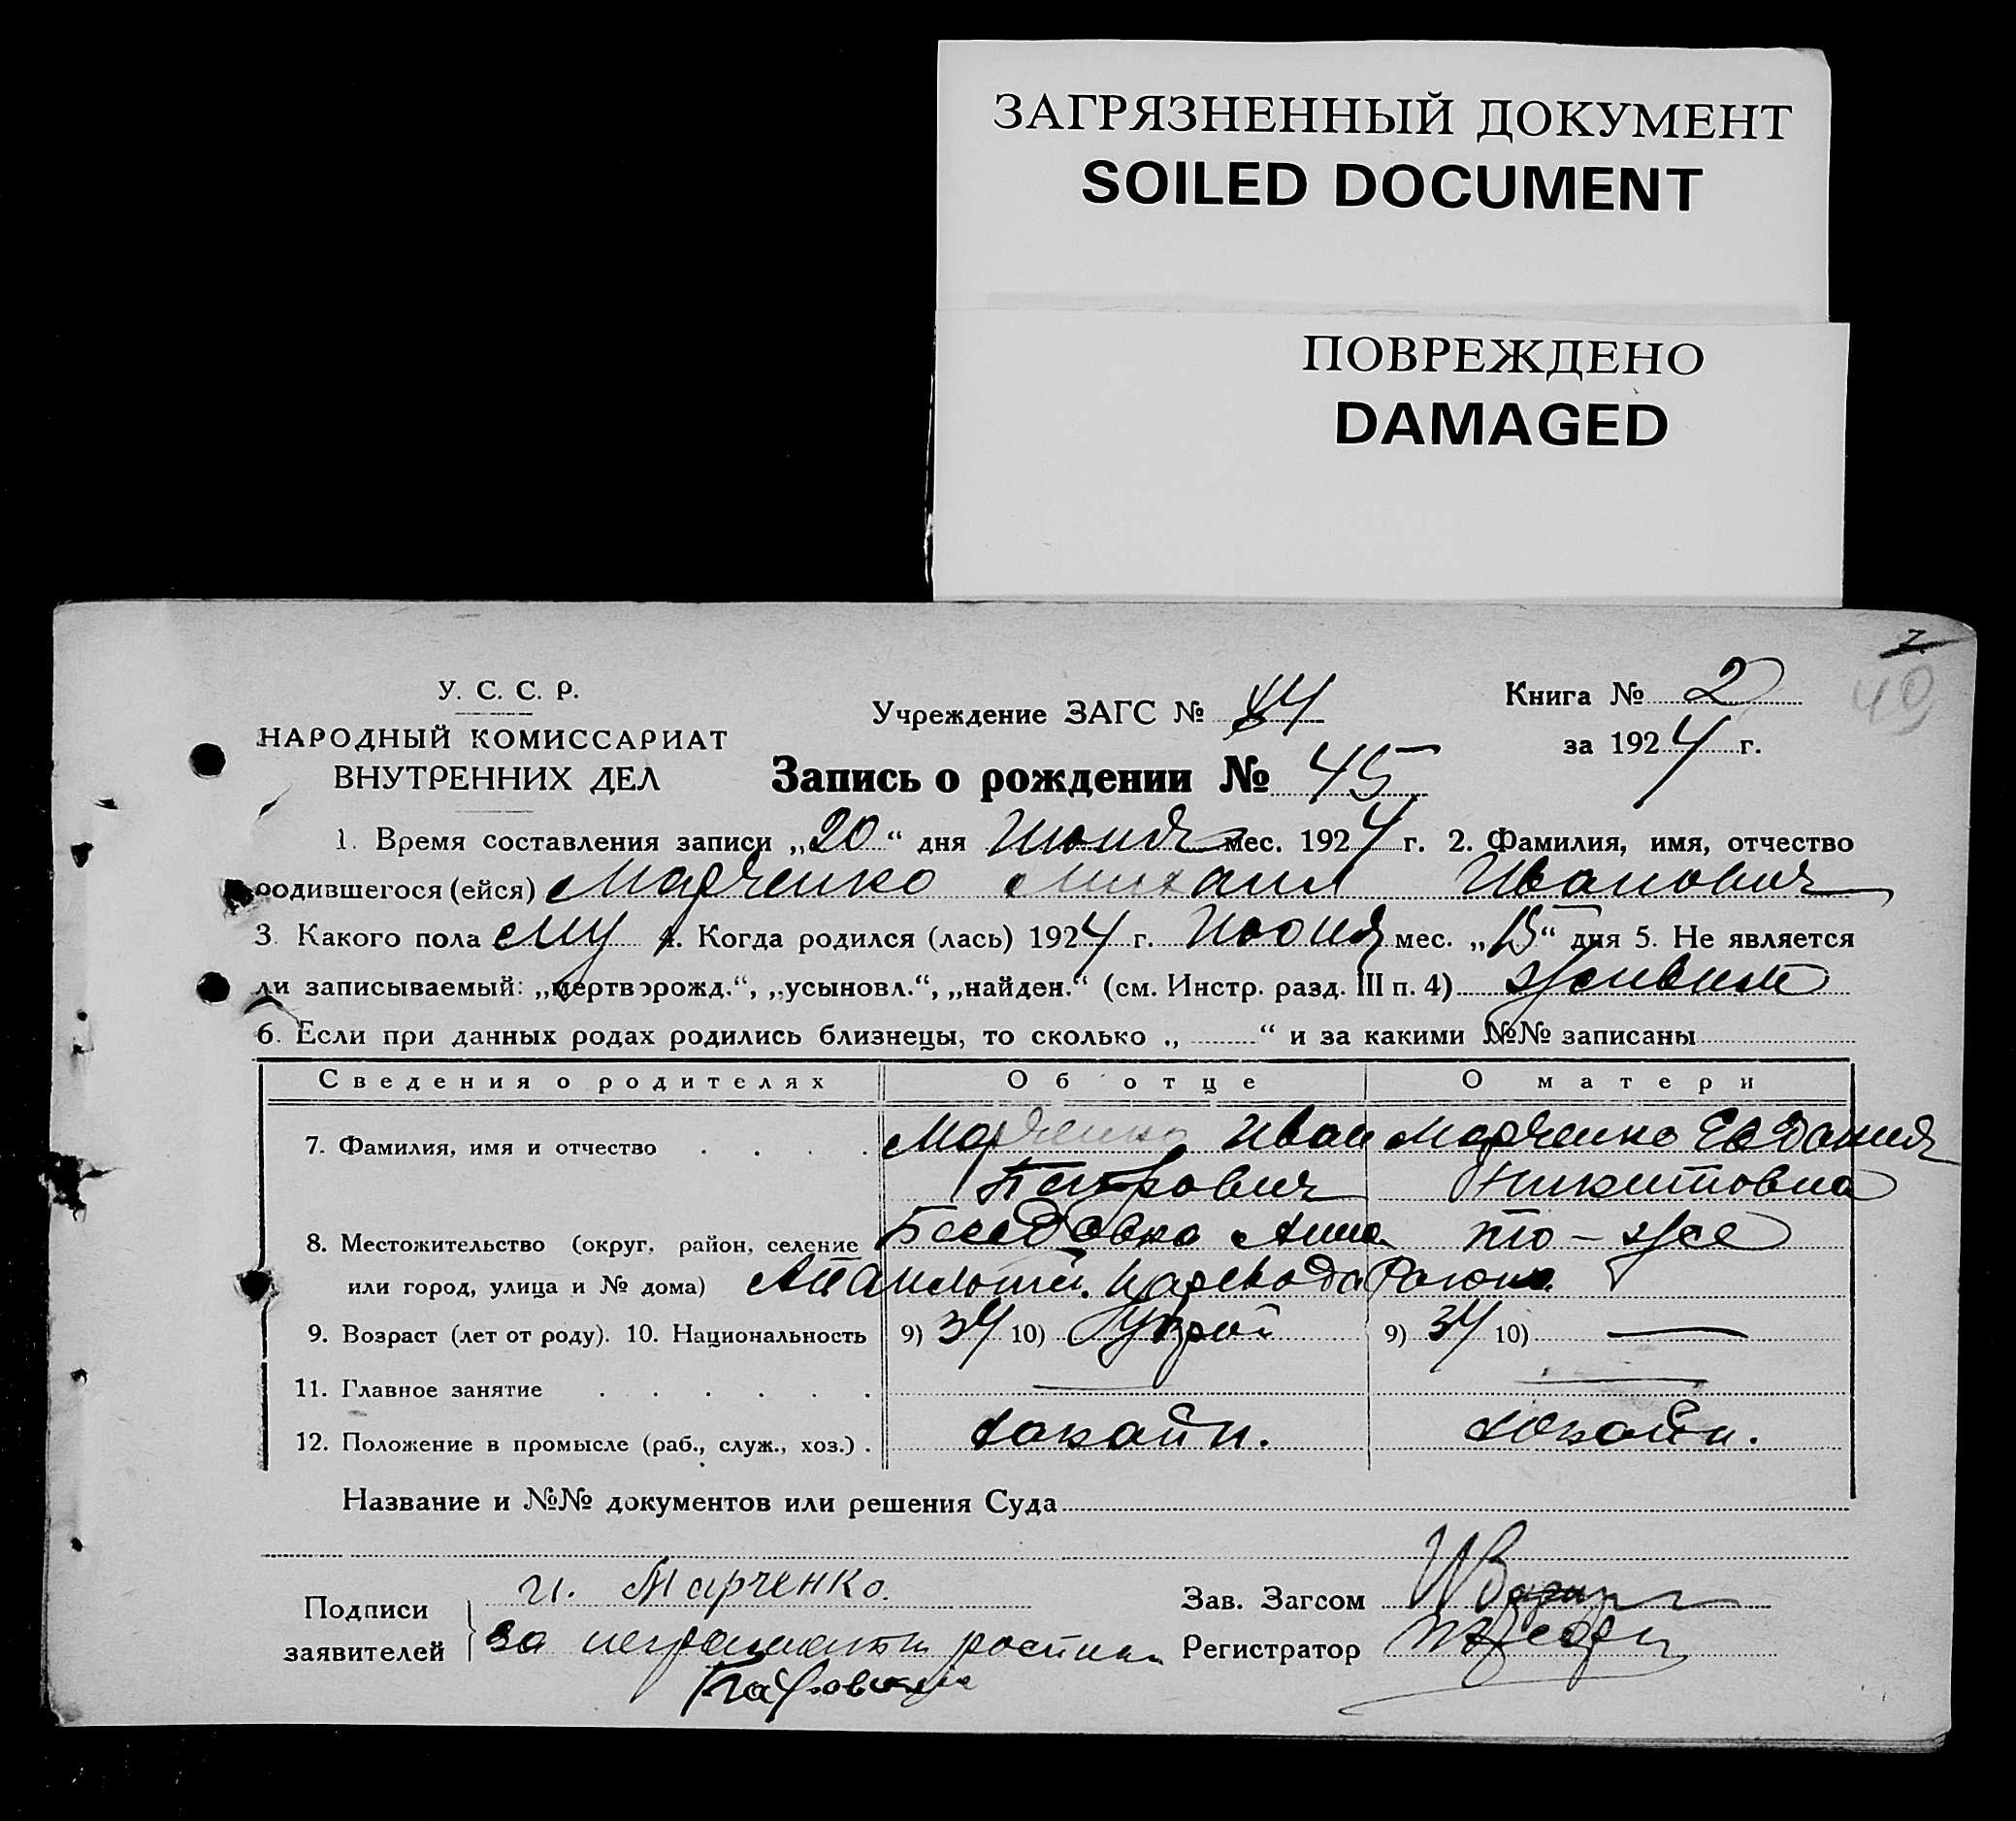 ЗАГРЯЗНЕННЫЙ ДОКУМЕНТ
SOILED DOCUMENT
ПОВРЕЖДЕНО
DAMAGED
7
49
У. С. С. Р.
НАРОДНЫЙ КОМИССАРИАТ
ВНУТРЕННИХ ДЕЛ
Учреждение ЗАГС №
Книга № 2
за 1924 г.
Запись о рождении № 45
1. Время составления записи „20“ дня Июня мес. 1924 г. 2. Фамилия, имя, отчество
родившегося (ейся) Марченко Михаил Иванович
3. Какого пола муж 4. Когда родился (лась) 1924 г. Июня мес. „15“ дня 5. Не является
ли записываемый: „мертворожд.“, „усыновл.“, „найден.“ (см. Инстр. разд. III п. 4) живым
6. Если при данных родах родились близнецы, то сколько „ “ и за какими №№ записаны
Сведения о родителях Об отце О матери
7. Фамилия, имя и отчество Марченко Иван Марченко Евдокия
Петрович Никитовна
8. Местожительство (округ, район, селение то-же
или город, улица и № дома)
9. Возраст (лет от роду). 10. Национальность 9) 34 10) 9) 34 10) —
11. Главное занятие — —
12. Положение в промысле (раб., служ., хоз.)
Название и №№ документов или решения Суда
Подписи
заявителей
И. Марченко.
за
Зав. Загсом
Регистратор